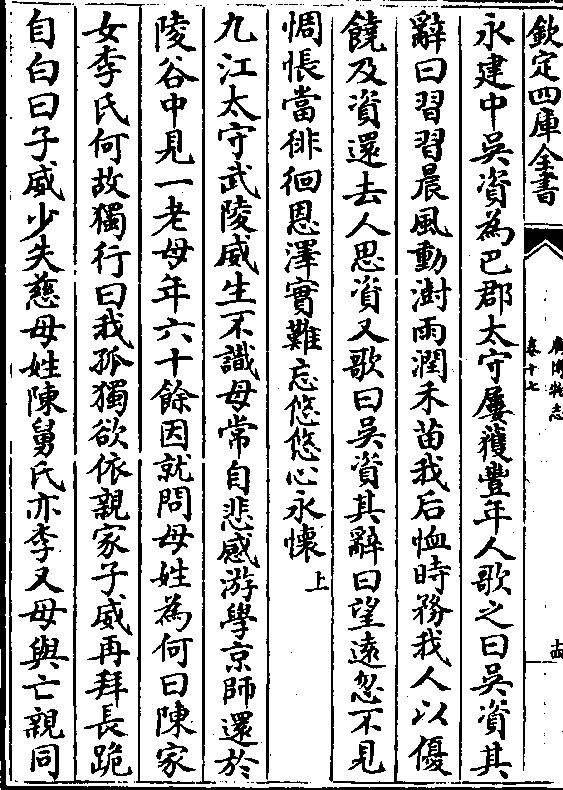 欽定四庫全書
廣博物志
卷十七
十四
永建中吳資為巴郡太守屢獲豐年人歌之曰吳資其
辭曰習習晨風動澍雨潤禾苗我后恤時務我人以優
饒及資還去人思資又歌曰吳資其辭曰望遠忽不見
惆悵當徘徊恩澤實難忘悠悠心永懷上
九江太守武陵威生不識母常自悲感游學京師還於
陵谷中見一老母年六十餘因就問母姓為何曰陳家
女李氏何故獨行曰我孤獨欲依親家子威再拜長跪
自白曰子威少失慈母姓陳舅氏亦李又母與亡親同